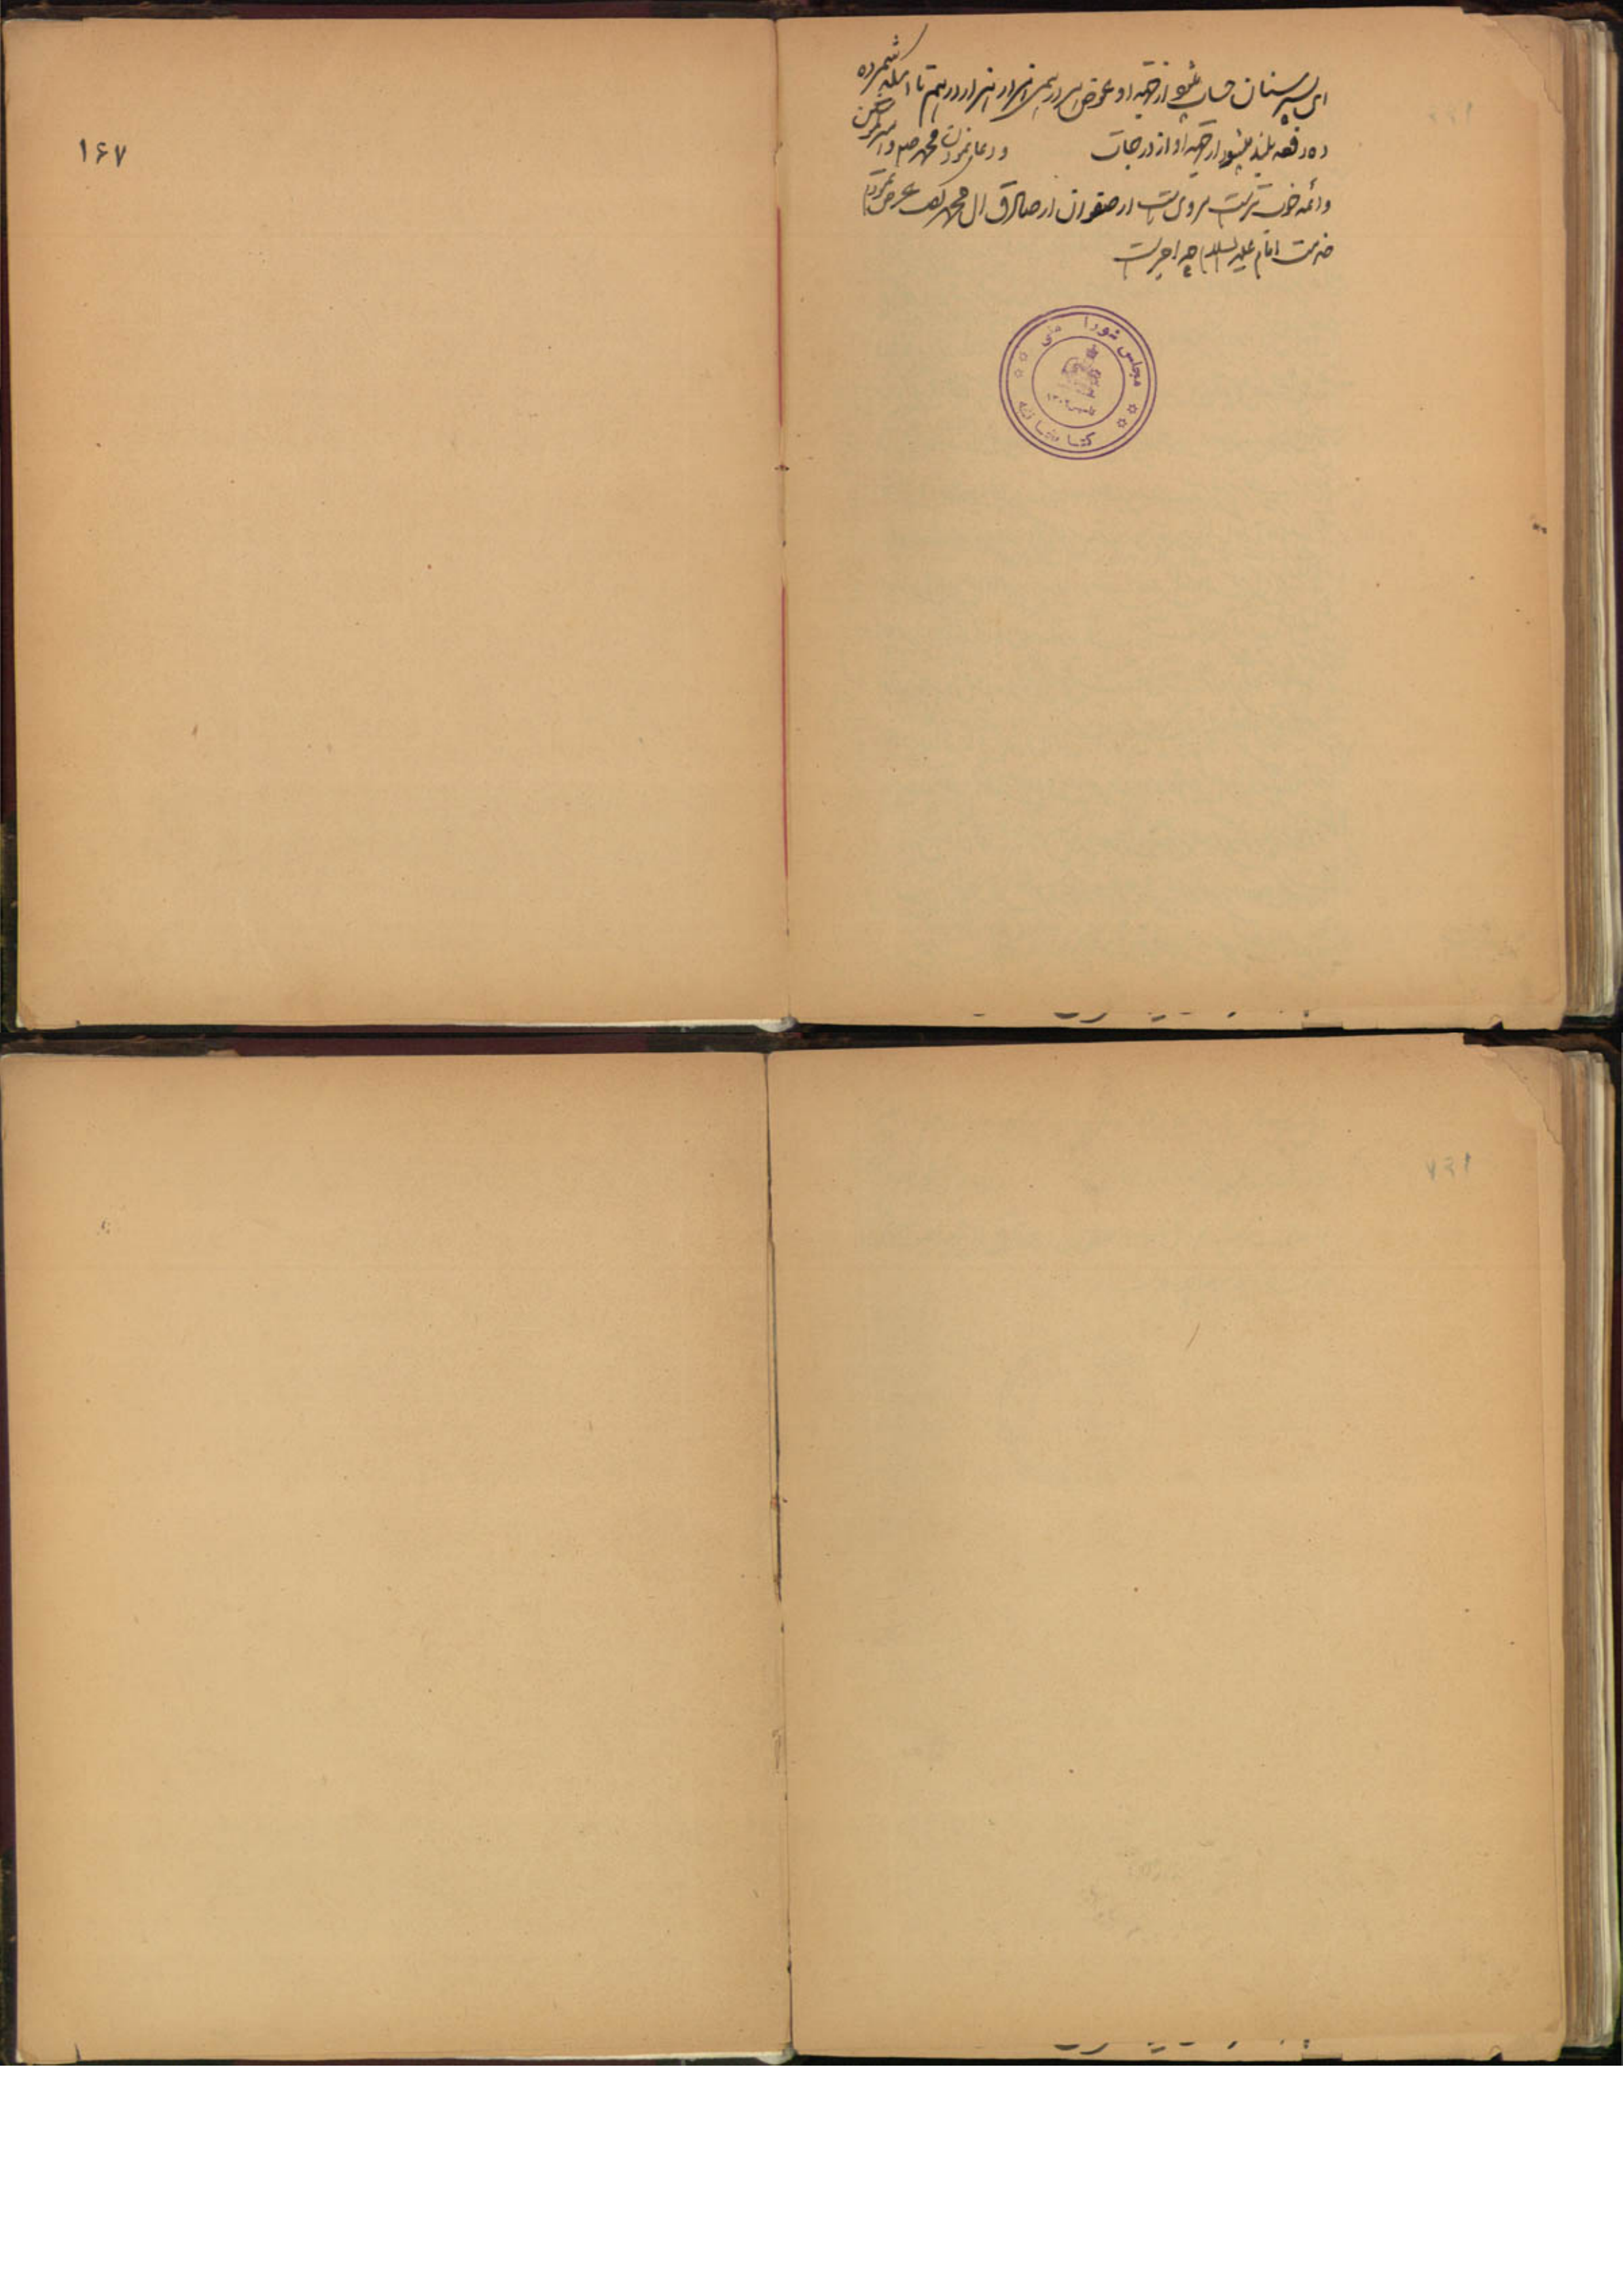 ای پسر سنان حساب میشود از جهة او عوض هر درهمی هزار هزار درهم تا اینکه شمرده
ده دفعه بلند میشود از جهة او از درجات و دعا نمودن محمد صم و امیرالمؤمنین
و ائمه خوب تر است مرویست از صفوان از صادق آل محمد که عرض نمودم
خدمت امام علیه السلام چه اجر است
۱۶۷
مجلس شورا ملی
کتابخانه